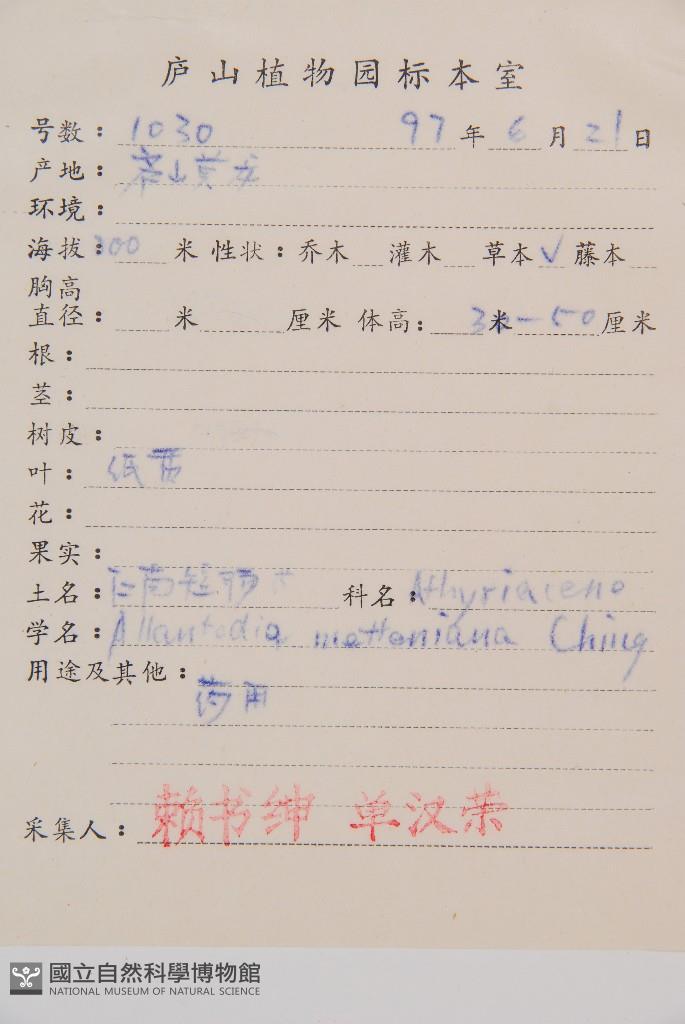 庐山植物园标本室
号数：1030 97年6月21日
产地：庐山黄龙
环境：
海拔：300米 性状：乔木 灌木 草本√ 藤本
胸高
直径： 米 厘米 体高： 米30—50厘米
根：
茎：
树皮：
叶：纸质
花：
果实：
土名： 科名：Athyriaceae
学名：Allantodia metteniana Ching
用途及其他：
药用
采集人：赖书绅 单汉荣
國立自然科學博物館
NATIONAL MUSEUM OF NATURAL SCIENCE